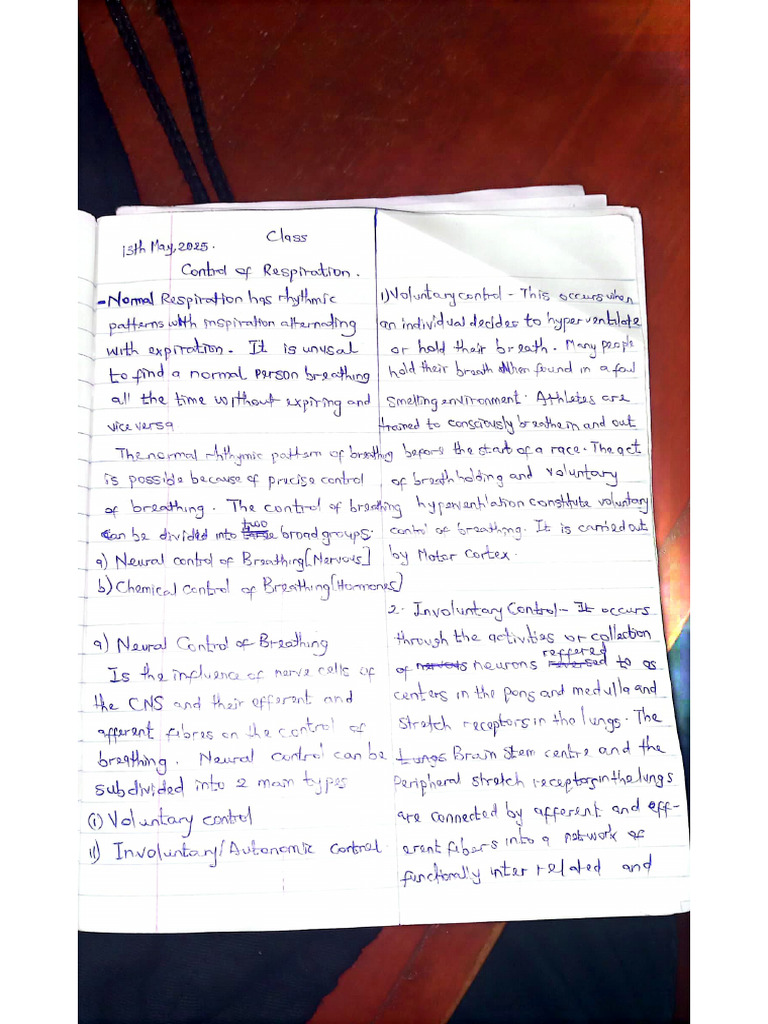 13th May, 2025.
Class
Control of Respiration.
- Normal Respiration has rhythmic
patterns with inspiration alternating
with expiration. It is unusal
to find a normal person breathing
all the time without expiring and
vice versa
The normal rhthymic pattern of breathing
is possible because of precise control
of breathing. The control of breathing
can be divided into two broad groups.
a) Neural control of Breathing [Nervous]
b) Chemical control of Breathing [Hormones]
a) Neural Control of Breathing
Is the influence of nerve cells of
the CNS and their efferent and
afferent fibres on the control of
breathing. Neural control can be
subdivided into 2 main types
(i) Voluntary control
ii) Involuntary/Autonomic control
i) Voluntary control - This occurs when
an individual decides to hyperventilate
or hold their breath. Many people
hold their breath when found in a foul
smelling environment. Athletes are
trained to consciously breathe in and out
before the start of a race. The act
of breath holding and voluntary
hyperventilation constitute voluntary
control of breathing. It is carried out
by Motor cortex.
2. Involuntary Control - It occurs
through the activities or collection
of nervous neurons reffered to as
centers in the pons and medulla and
stretch receptors in the lungs. The
Lungs Brain stem centre and the
Peripheral stretch receptors in the lungs
are connected by afferent and eff-
erent fibers into a network of
functionally inter related and